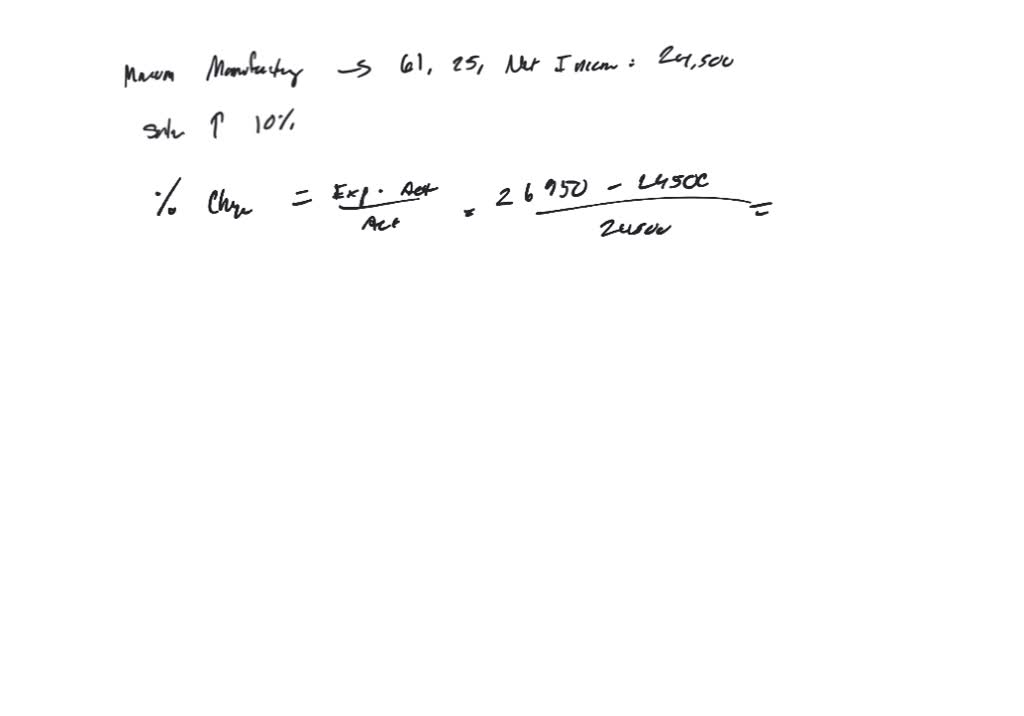 Manufacturing → 61, 25, Net Income: 24,500
Sales ↑ 10%
% Change = Exp - Act / Act = 26950 - 24500 / 24500 =